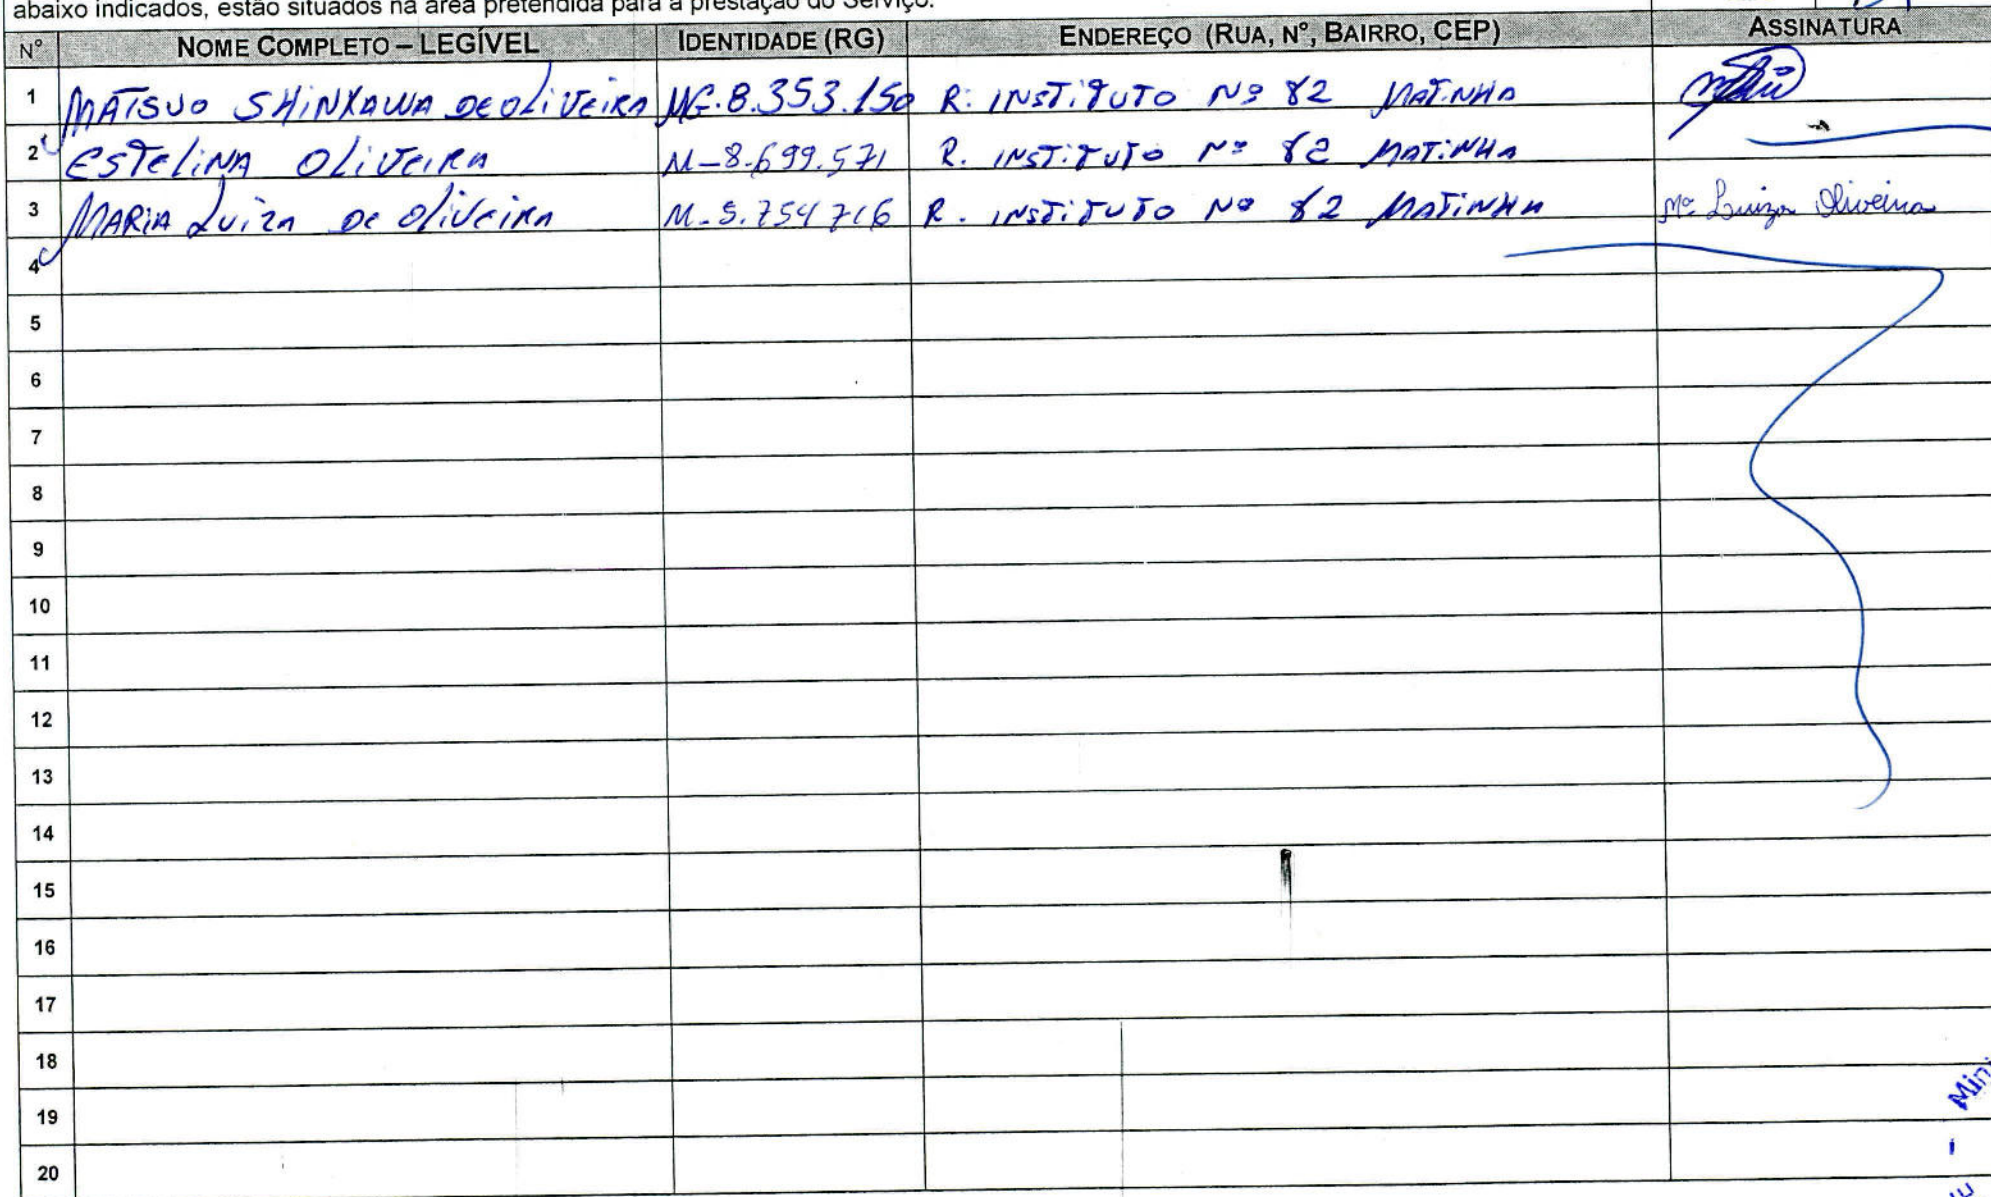 abaixo indicados, estão situados na área pretendida para a prestação do Serviço.
Nº NOME COMPLETO – LEGÍVEL IDENTIDADE (RG) ENDEREÇO (RUA, Nº, BAIRRO, CEP) ASSINATURA
1 MATSUO SHINKAWA DE OLIVEIRA MG.8.353.150 R. INSTITUTO Nº 82 MATINHA
2 ESTELINA OLIVEIRA M-8.699.571 R. INSTITUTO Nº 82 MATINHA
3 MARIA LUIZA DE OLIVEIRA M-5.754716 R. INSTITUTO Nº 82 MATINHA Mª Luiza Oliveira
4
5
6
7
8
9
10
11
12
13
14
15
16
17
18
19
20